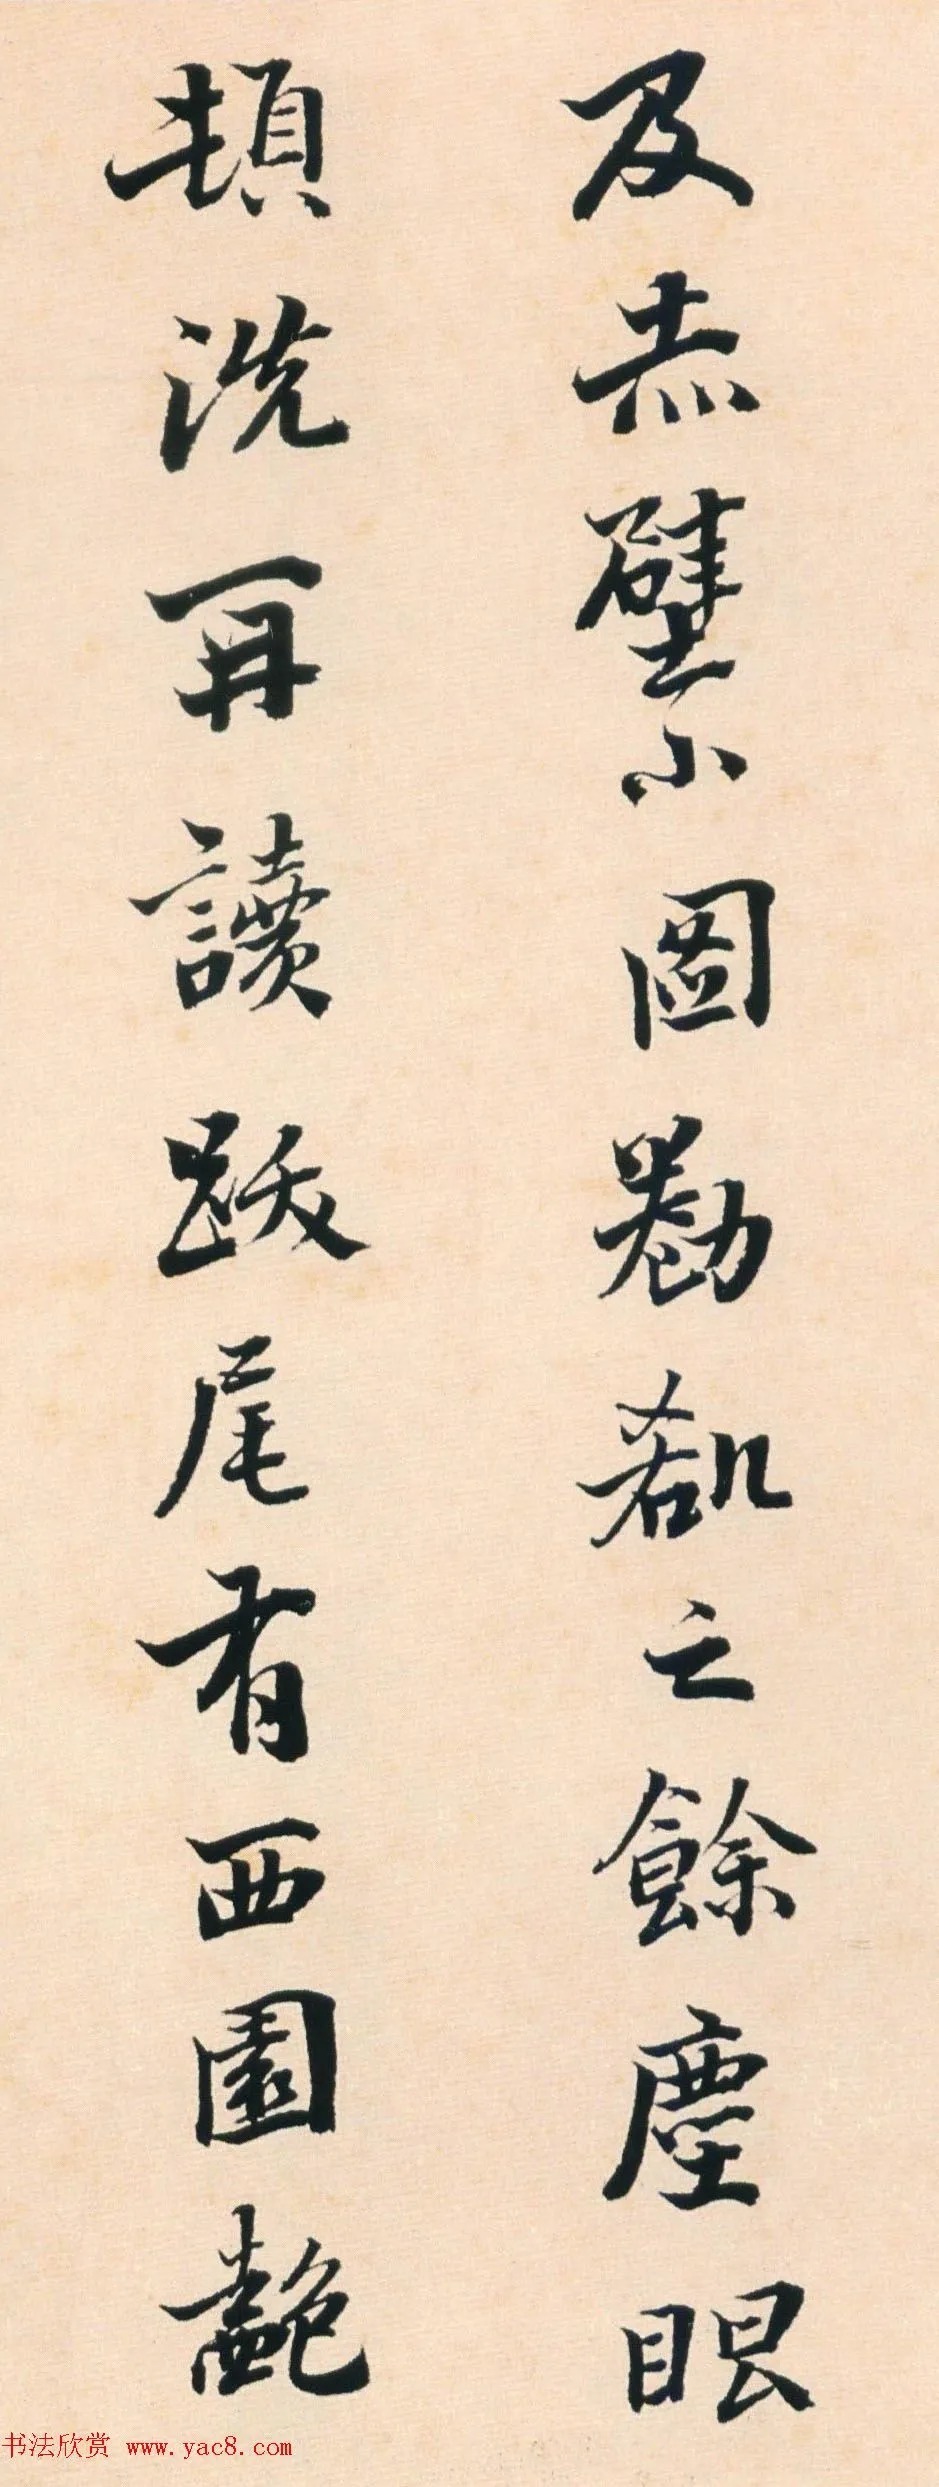 及赤壁小圖勘讎之餘塵眼
頓洗再讀跋尾有西園豔
书法欣赏 www.yac8.com